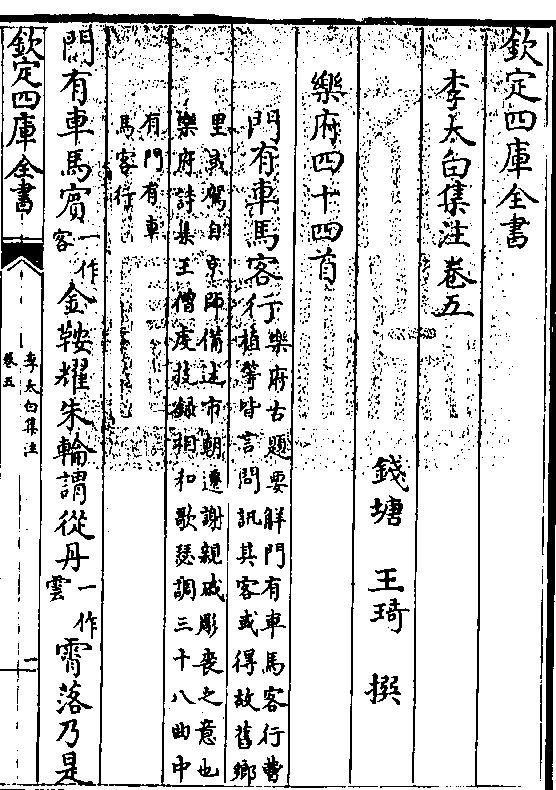 欽定四庫全書
李太白集注卷五
錢塘 王琦 撰
樂府四十四首
門有車馬客行
樂府古題要解門有車馬客行曹
植等皆言問訊其客或得故舊鄉
里或駕自京師備述市朝遷謝親戚彫喪之意也
樂府詩集王僧虔技錄相和歌瑟調三十八曲中
有門有車
馬客行
門有車馬賓一作客金鞍耀朱輪謂從丹一作雲霄落乃是
欽定四庫全書
李太白集注
卷五
一